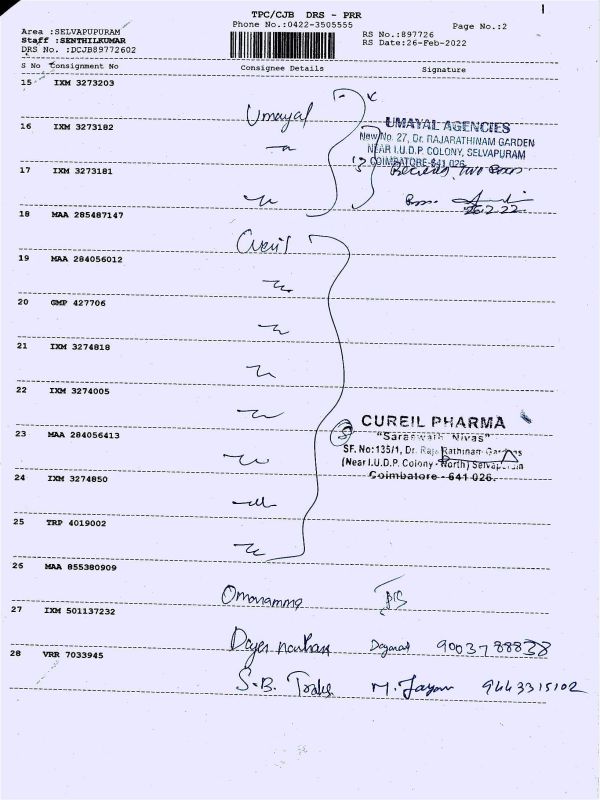 TPC/CJB DRS - PRR
Phone No.:0422-3505555
Page No.:2
Area :SELVAPUPURAM
Staff :SENTHILKUMAR
DRS No. :DCJB89772602
RS No.:897726
RS Date:26-Feb-2022
S No Consignment No Consignee Details Signature
15 IXM 3273203
Umayal
UMAYAL AGENCIES
New No. 27, Dr. RAJARATHINAM GARDEN
NEAR I.U.D.P. COLONY, SELVAPURAM
COIMBATORE-641 026.
16 IXM 3273182
17 IXM 3273181
Two
18 MAA 285487147
19 MAA 284056012
20 GMP 427706
21 IXM 3274818
22 IXM 3274005
CUREIL PHARMA
"Saraswathi Nivas"
SF. No:135/1, Dr. Raja Rathinam
(Near I.U.D.P. Colony - North)
Coimbatore - 641 026.
8
23 MAA 284056413
24 IXM 3274850
25 TRP 4019002
26 MAA 855380909
27 IXM 501137232
9003788838
28 VRR 7033945
S.B. M. 9443315102